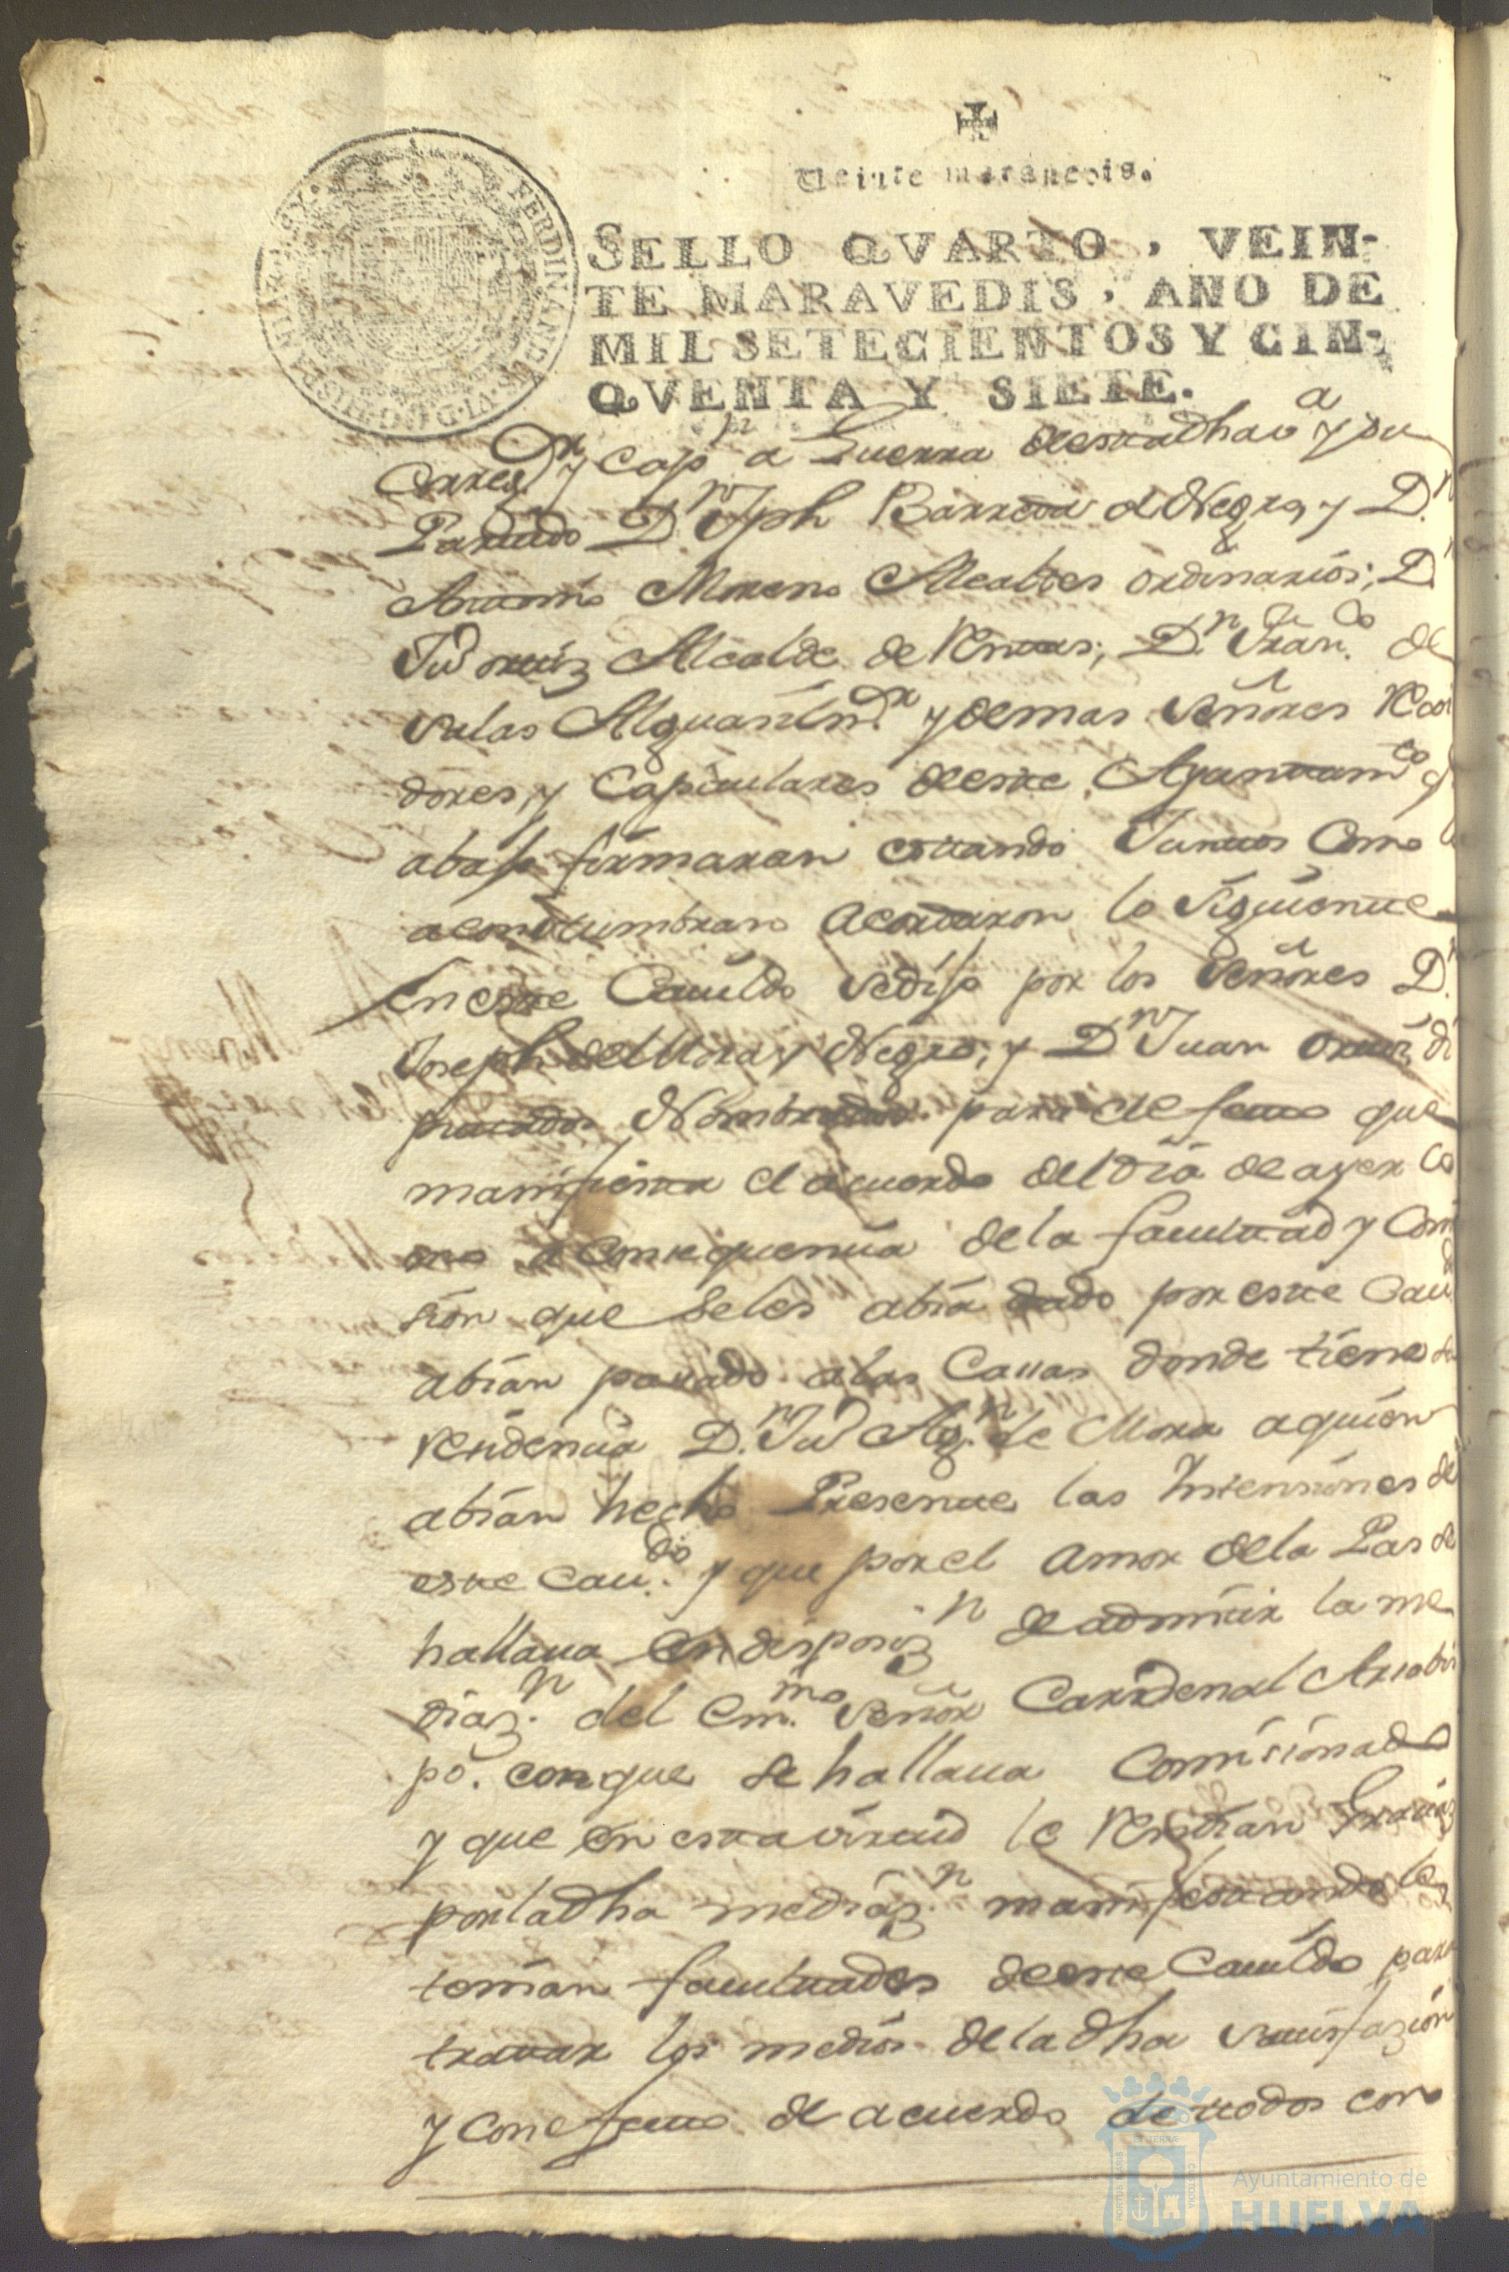 ✠
Veinte maravedis.
SELLO QVARTO, VEIN-
TE MARAVEDIS, AÑO DE
MIL SETECIENTOS Y CIN-
QVENTA Y SIETE.
FERDINANDUS·VI·D·G·HISPANIAR·REX·
Corregr y Capn a Guerra desta dha va y su
Partido Dn Jph Barreda el Negro, y Dn
Antonio Moreno Alcaldes ordinarios; Dn
Jud ortiz Alcalde de Rentas; Dn Franco de
salas Alguasilmr y demas señores Regi
dores, y Capitulares deeste Ayuntamto q
abajo firmaran estando Juntos Como lo
acostumbran Acordaron lo siguiente
En este Cauildo sedijo por los señores Dn
Joseph de Mora y Negro, y Dn Juan ortiz di
putados Nombrados para el efecto que
manifiesta el acuerdo del dia de ayer Co
mo a Consequencia de la facultad y Comi
sion que seles abia dado por este Caudo
abian pasado alas Casas donde tiene su
residencia Dn Jud Agn de Mora aquien
abian hecho Presente las Intensiones de
este Caudo y que por el amor dela Pas se
hallaua en disposizn de admitir la me
diazn del Emmo señor Cardenal Arzobis
po. con que se hallaua Comisionado
y que en esta virtud le rendian Gracias
por la dha mediazn manifestandole
tenian facultades deeste Cauildo para
tratar los medios de la dha satisfazion
y con efecto de acuerdo de todos con
Ayuntamiento de
HUELVA